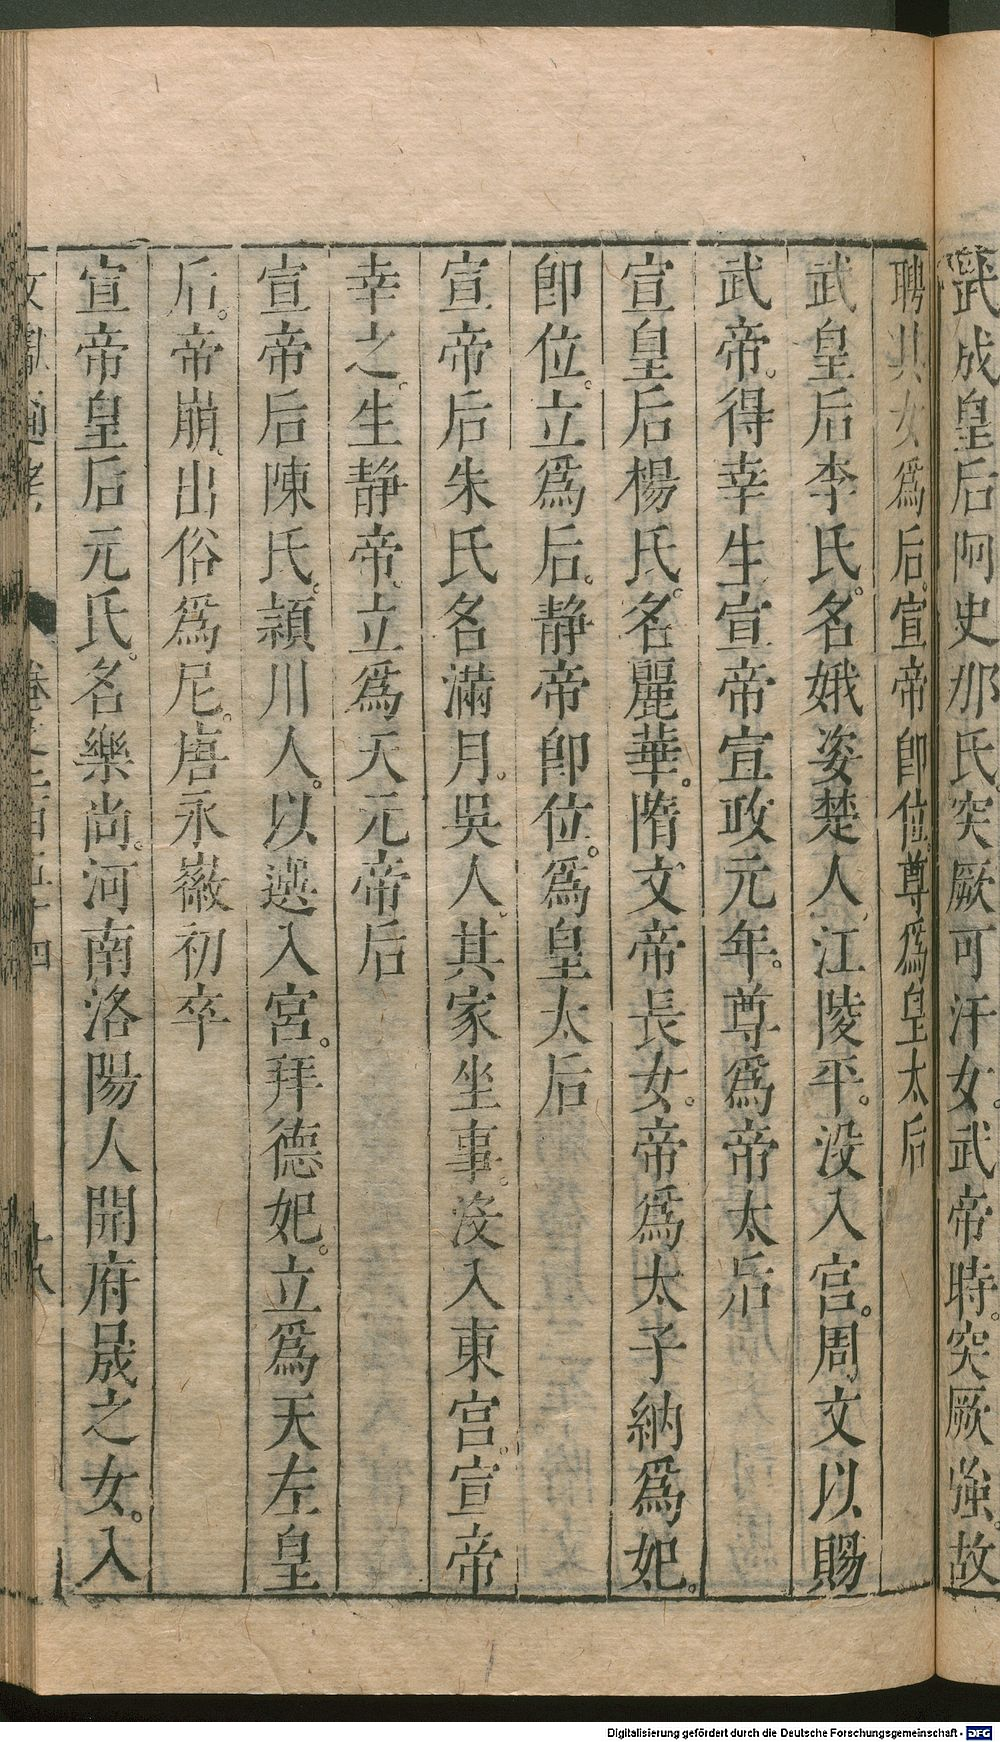 武成皇后阿史那氏突厥可汗女。武帝時。突厥強。故
聘其女爲后。宣帝卽位。尊爲皇太后
武皇后李氏。名娥姿楚人江陵平。没入宮。周文以賜
武帝。得幸生宣帝宣政元年。尊爲帝太后
宣皇后楊氏。名麗華。隋文帝長女。帝爲太子納爲妃。
卽位。立爲后。静帝卽位。爲皇太后
宣帝后朱氏名滿月。吳人。其家坐事。没入東宮。宣帝
幸之。生静帝。立爲天元帝后
宣帝后陳氏。潁川人。以選入宮。拜德妃。立爲天左皇
后。帝崩。出俗爲尼。唐永徽初卒
宣帝皇后元氏。名樂尚。河南洛陽人開府晟之女。入
文獻通考 卷之二百五十四 十八
Digitalisierung gefördert durch die Deutsche Forschungsgemeinschaft - DFG